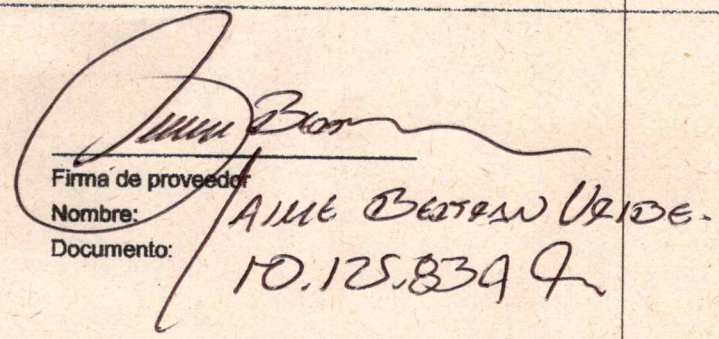 Firma de proveedor
Nombre: JAIME BELTRAN URIBE.
Documento: 10.125.839